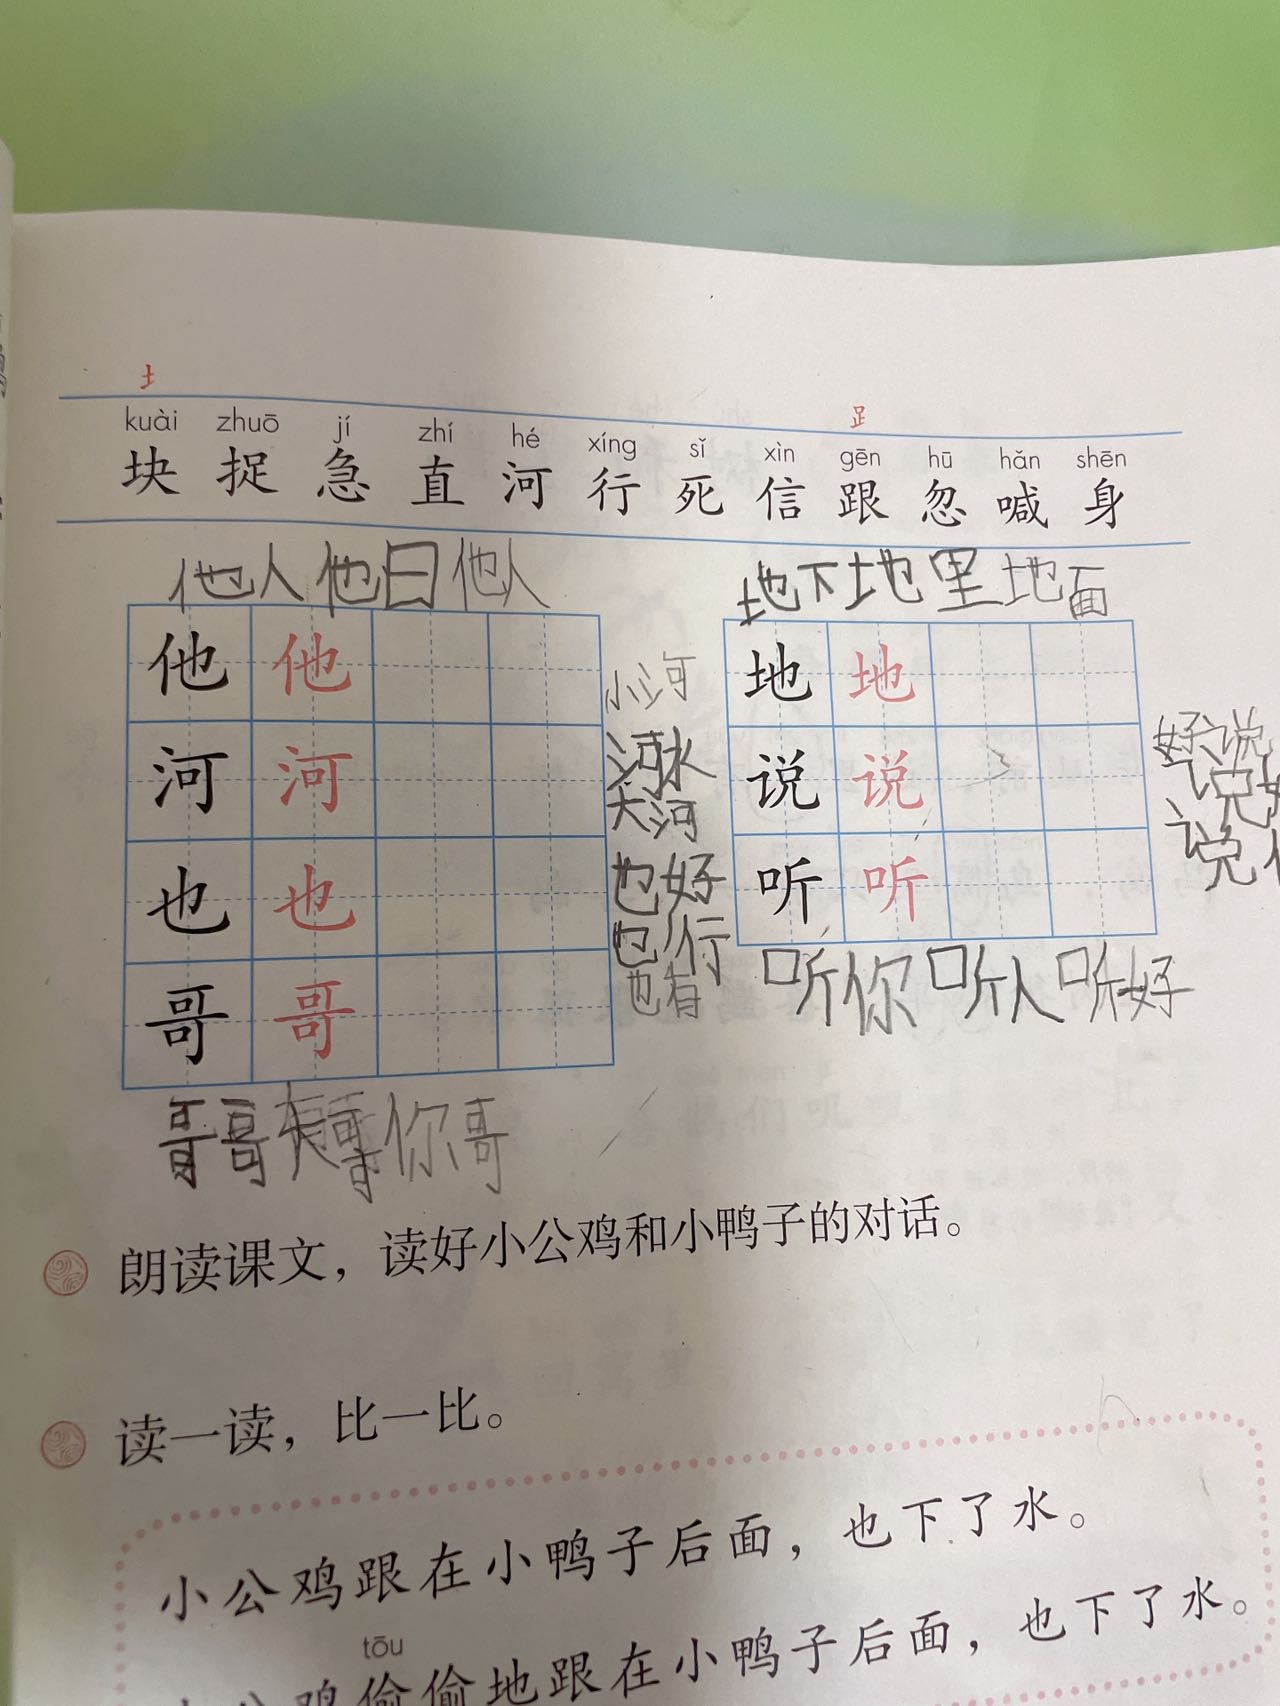 kuài zhuō jí zhí hé xíng sǐ xìn gēn hū hǎn shēn
块 捉 急 直 河 行 死 信 跟 忽 喊 身
他人 他日 他人
地下 地里 地面
他 他
河 河
也 也
哥 哥
小河
河水
大河
也好
也行
也有
地 地
说 说
听 听
好说
说好
说
听你 听人 听好
哥哥 大哥 你哥
朗读课文，读好小公鸡和小鸭子的对话。
读一读，比一比。
小公鸡跟在小鸭子后面，也下了水。
tōu
公鸡偷偷地跟在小鸭子后面，也下了水。